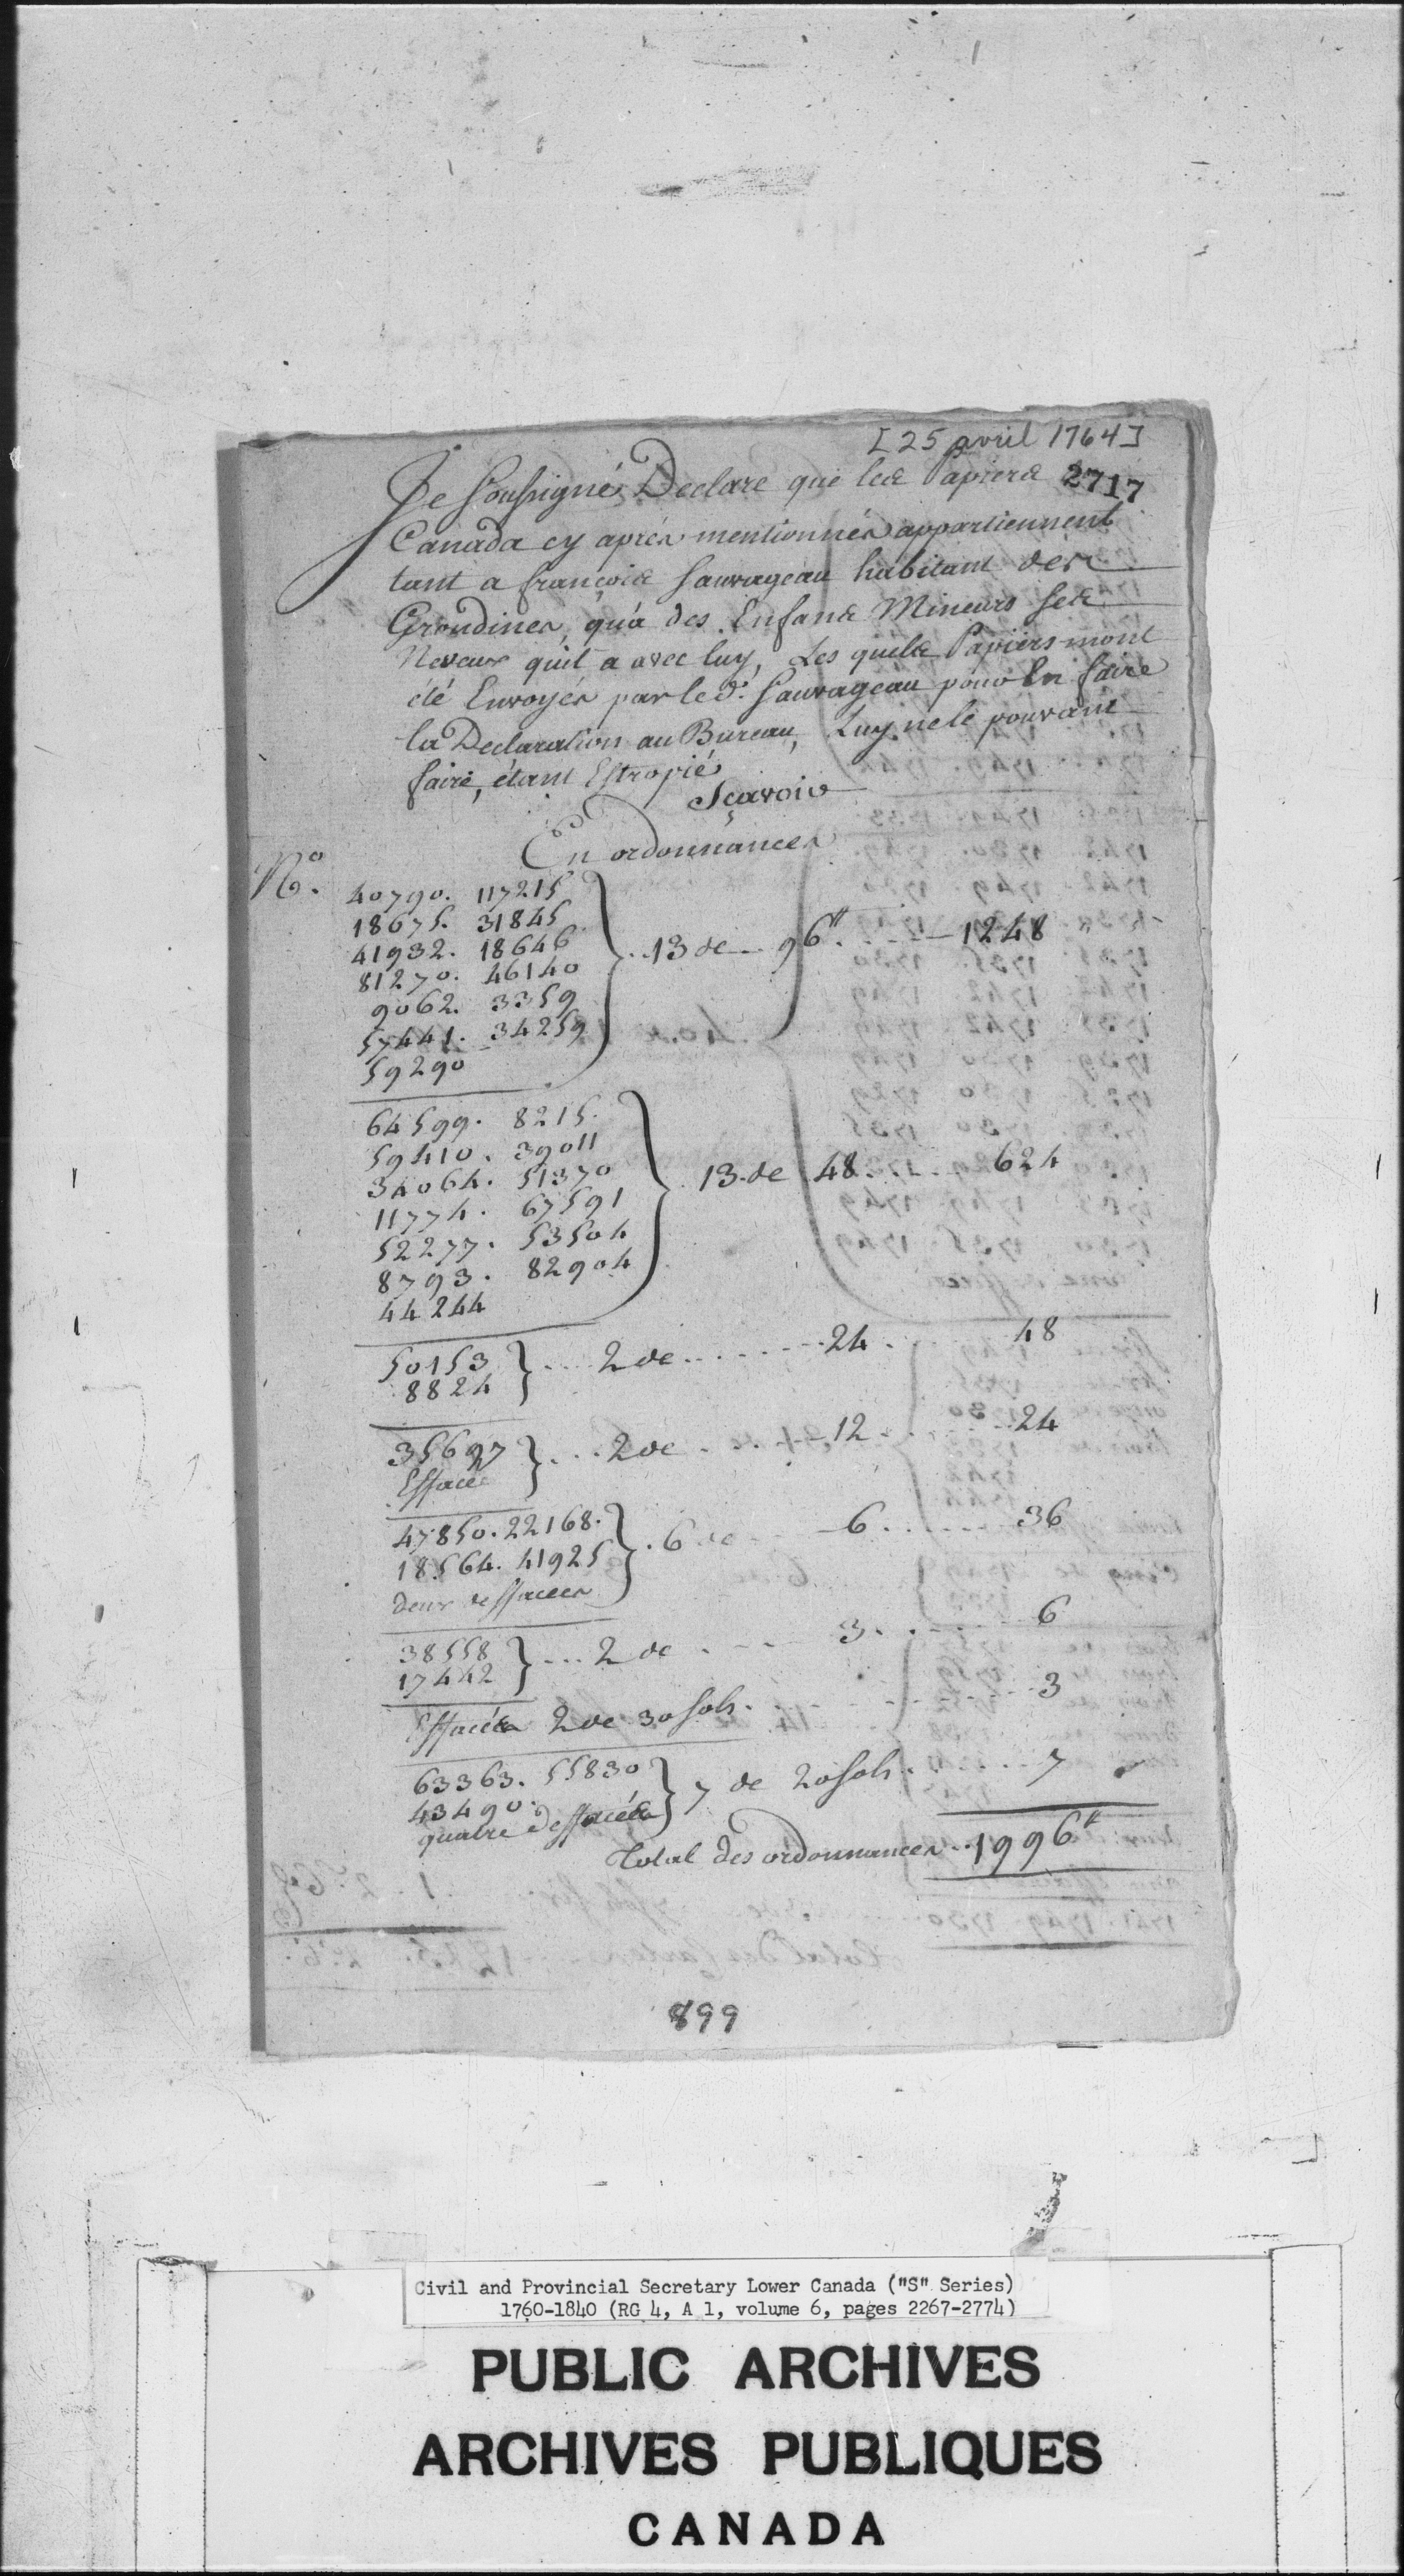 [25 avril 1764]
Je Soussigné Declare que les Papiers 2717
Canada cy aprés mentionnés appartiennent
tant a françois Sauvageau habitant des
Grondines, qu'a des Enfans Mineurs ses
Neveux quil a avec luy, Les quels Papiers mont
été Envoyés par led. Sauvageau pour En faire
la Declaration au Bureau, Luy ne le pouvant
faire, étant Estropié
Sçavoir
En ordonnances
No.
40790. 117215
18675. 31845
41932. 18646
81270. 46140
9062. 3359
57441. 34259
59290
13 de 96# 1248
64599. 8215.
59410. 39011
34064. 51370
11774. 67591
52277. 53504
8793. 82904
44244
13. de 48 624
50153
8824
2 de 24 48
35697
Effacé
2 de 12 24
47850. 22168.
18564. 41925
deux deffacées
6 de 6 36
38558
17442
2 de 3 6
Effacées 2 de 30 sols. 3
63363. 55830
43490.
quatre deffacées
7 de 20 sols 7
Total des ordonnances 1996#
899
Civil and Provincial Secretary Lower Canada ("S" Series)
1760-1840 (RG 4, A 1, volume 6, pages 2267-2774)
PUBLIC ARCHIVES
ARCHIVES PUBLIQUES
CANADA